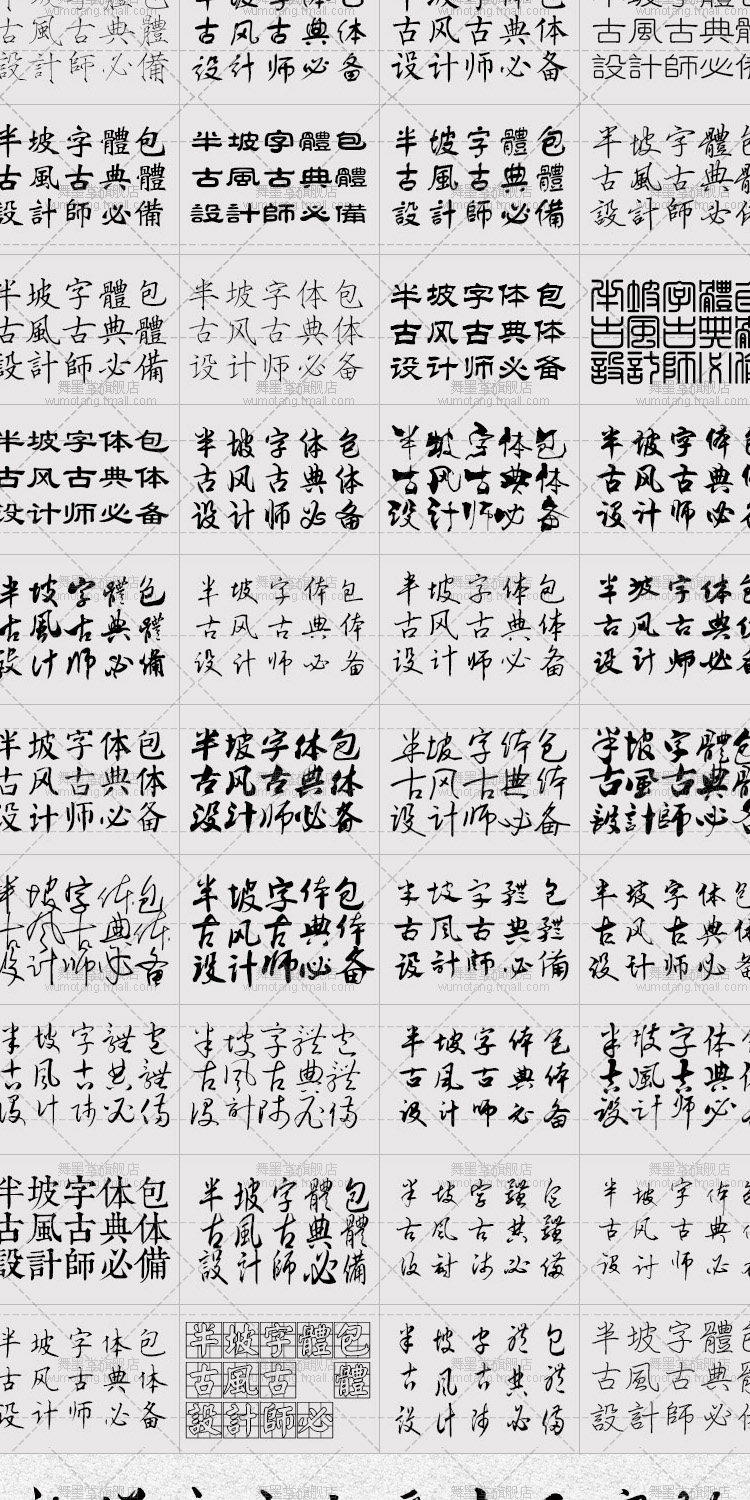 古風古典體
設計師必備
古风古典体
设计师必备
古风古典体
设计师必备
古風古典體
設計師必備
半坡字體包
古風古典體
設計師必備
半坡字體包
古風古典體
設計師必備
半坡字體包
古風古典體
設計師必備
半坡字體包
古風古典體
設計師必備
舞墨堂旗舰店
wumotang.tmall.com
半坡字體包
古風古典體
設計師必備
半坡字体包
古风古典体
设计师必备
半坡字体包
古风古典体
设计师必备
半坡字體包
古風古典體
設計師必備
半坡字体包
古风古典体
设计师必备
半坡字体包
古风古典体
设计师必备
半坡字体包
古风古典体
设计师必备
半坡字体包
古风古典体
设计师必备
半坡字體包
古風古典體
设计师必備
半坡字体包
古风古典体
设计师必备
半坡字体包
古风古典体
设计师必备
半坡字体包
古风古典体
设计师必备
半坡字体包
古风古典体
设计师必备
半坡字体包
古风古典体
设计师必备
半坡字体包
古风古典体
设计师必备
半坡字體包
古風古典體
設計師必备
半坡字体包
古风古典体
设计师必备
半坡字体包
古风古典体
设计师必备
半坡字體包
古風古典體
設計師必備
半坡字体包
古风古典体
设计师必备
半坡字體包
古風古典體
设计师必備
半坡字體包
古風古典體
設計師必備
半坡字体包
古風古典体
设计师必备
半坡字体包
古風古典体
設计师必备
半坡字体包
古風古典体
設計師必備
半坡字體包
古風古典體
設計師必備
半坡字體包
古風古典體
設計師必備
半坡字体包
古风古典体
设计师必备
半坡字体包
古风古典体
设计师必备
半坡字體包
古風古 體
設計師必
半坡字體包
古風古典體
設計師必備
半坡字體包
古風古典體
設計師必備